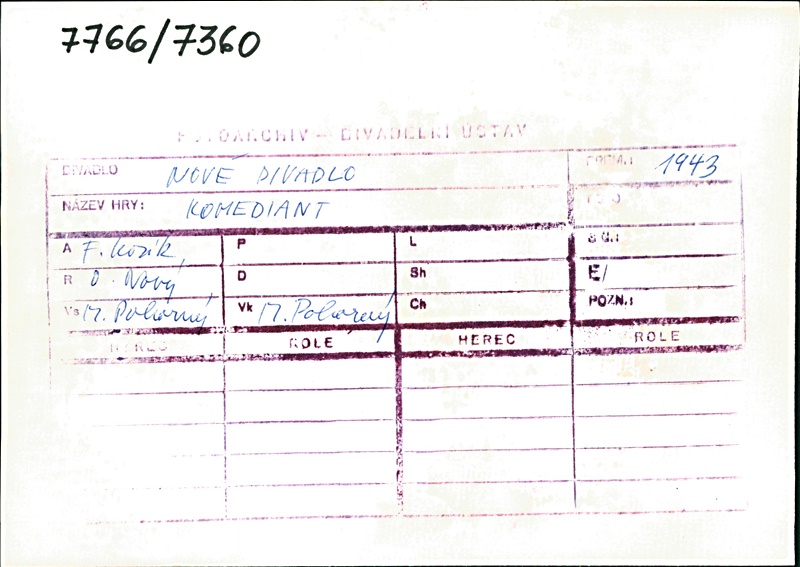 7766/7360
FOTOARCHIV – DIVADELNÍ ÚSTAV
DIVADLO NOVÉ DIVADLO PREM.: 1943
NÁZEV HRY: KOMEDIANT
A F. Kožík, P L
R O. Nový D Sh E/
Vs M. Pokorný Vk M. Pokorný Ch POZN.:
HEREC ROLE HEREC ROLE